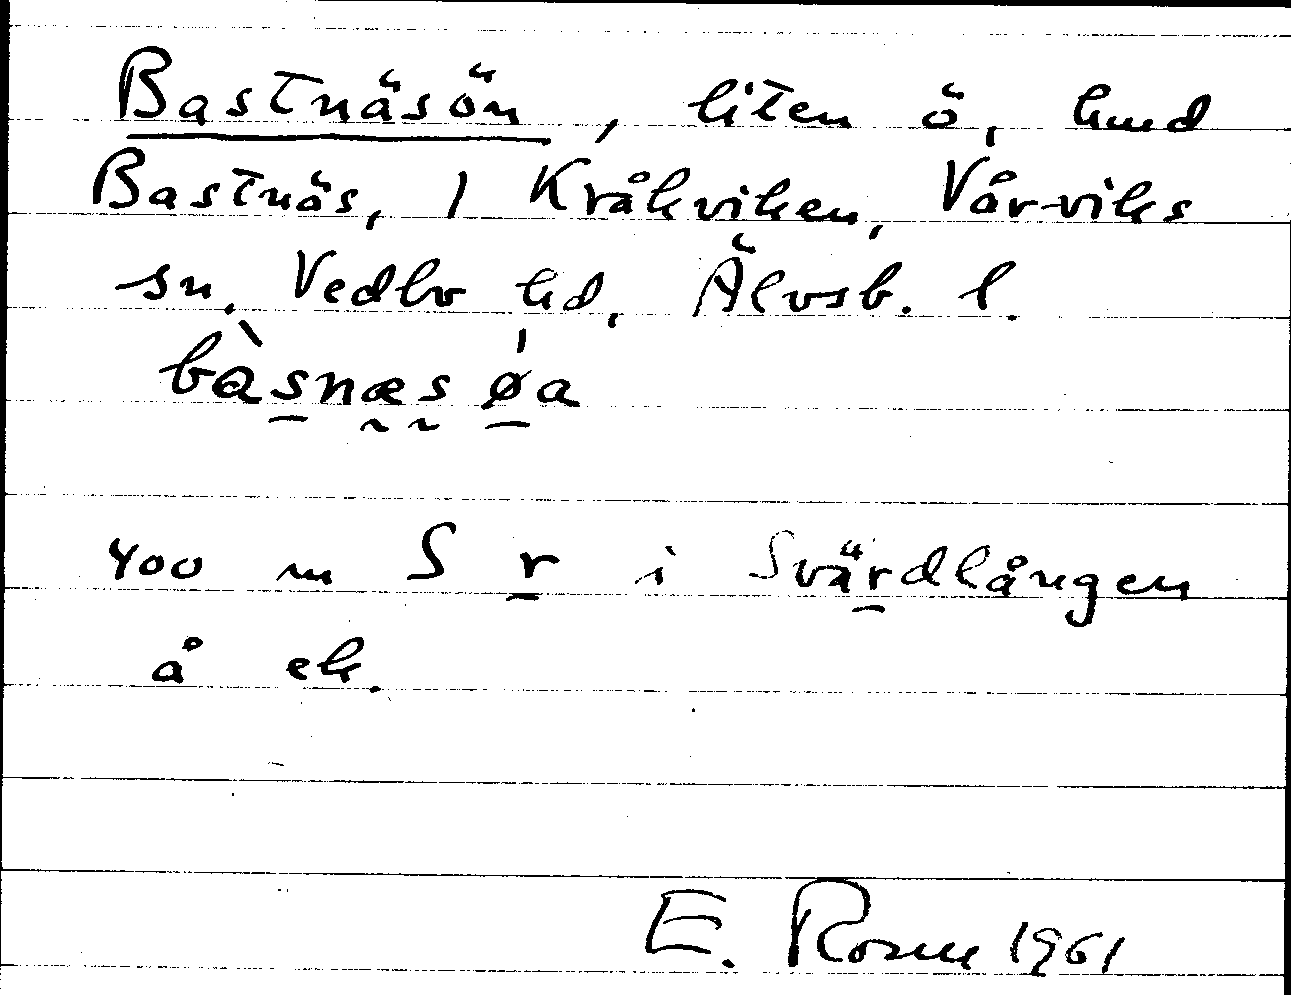 Bastnäsön, liten ö, hmd
Bastnäs, 1 Kråkviken, Vårviks
sn, Vedbo hd, Älvsb. l.
bàsnæsø̍a
400 m S r i Svärdlången
å ek.
E. Rosne 1961